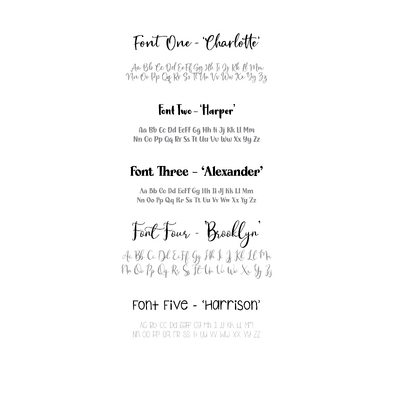 Font One - 'Charlotte'
Aa Bb Cc Dd Ee Ff Gg Hh Ii Jj Kk Ll Mm
Nn Oo Pp Qq Rr Ss Tt Uu Vv Ww Xx Yy Zz
Font Two - 'Harper'
Aa Bb Cc Dd EeFf Gg Hh Ii Jj Kk Ll Mm
Nn Oo Pp Qq Rr Ss Tt Uu Vv Ww Xx Yy Zz
Font Three - 'Alexander'
Aa Bb Cc Dd EeFf Gg Hh Ii Jj Kk Ll Mm
Nn Oo Pp Qq Rr Ss Tt Uu Vv Ww Xx Yy Zz
Font Four - 'Brooklyn'
Aa Bb Cc Dd Ee Ff Gg Hh Ii Jj Kk Ll Mm
Nn Oo Pp Qq Rr Ss Tt Uu Vv Ww Xx Yy Zz
Font Five - 'Harrison'
Aa Bb Cc Dd Ee Ff Gg Hh Ii Jj Kk Ll Mm
Nn Oo Pp Qq Rr Ss Tt Uu Vv Ww Xx Yy Zz